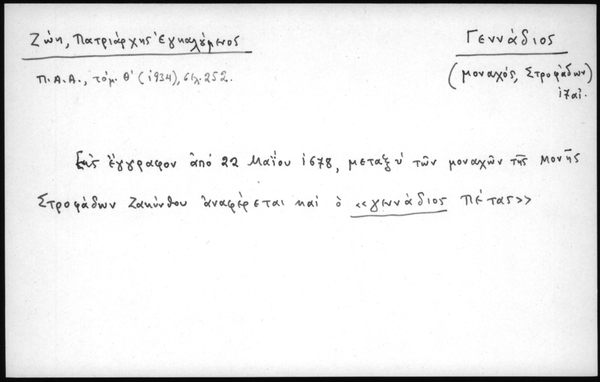 Ζώη, Πατριάρχης Ἐγκαλούμενος
Γεννάδιος
Π.Α.Α., τόμ. Θ' (1934), σελ. 252.
(μοναχός, Στροφάδων)
17 αἰ.
Εἰς ἔγγραφον ἀπό 22 Μαΐου 1678, μεταξύ τῶν μοναχῶν τῆς Μονῆς
Στροφάδων Ζακύνθου ἀναφέρεται καί ὁ «γεννάδιος Πέτας»